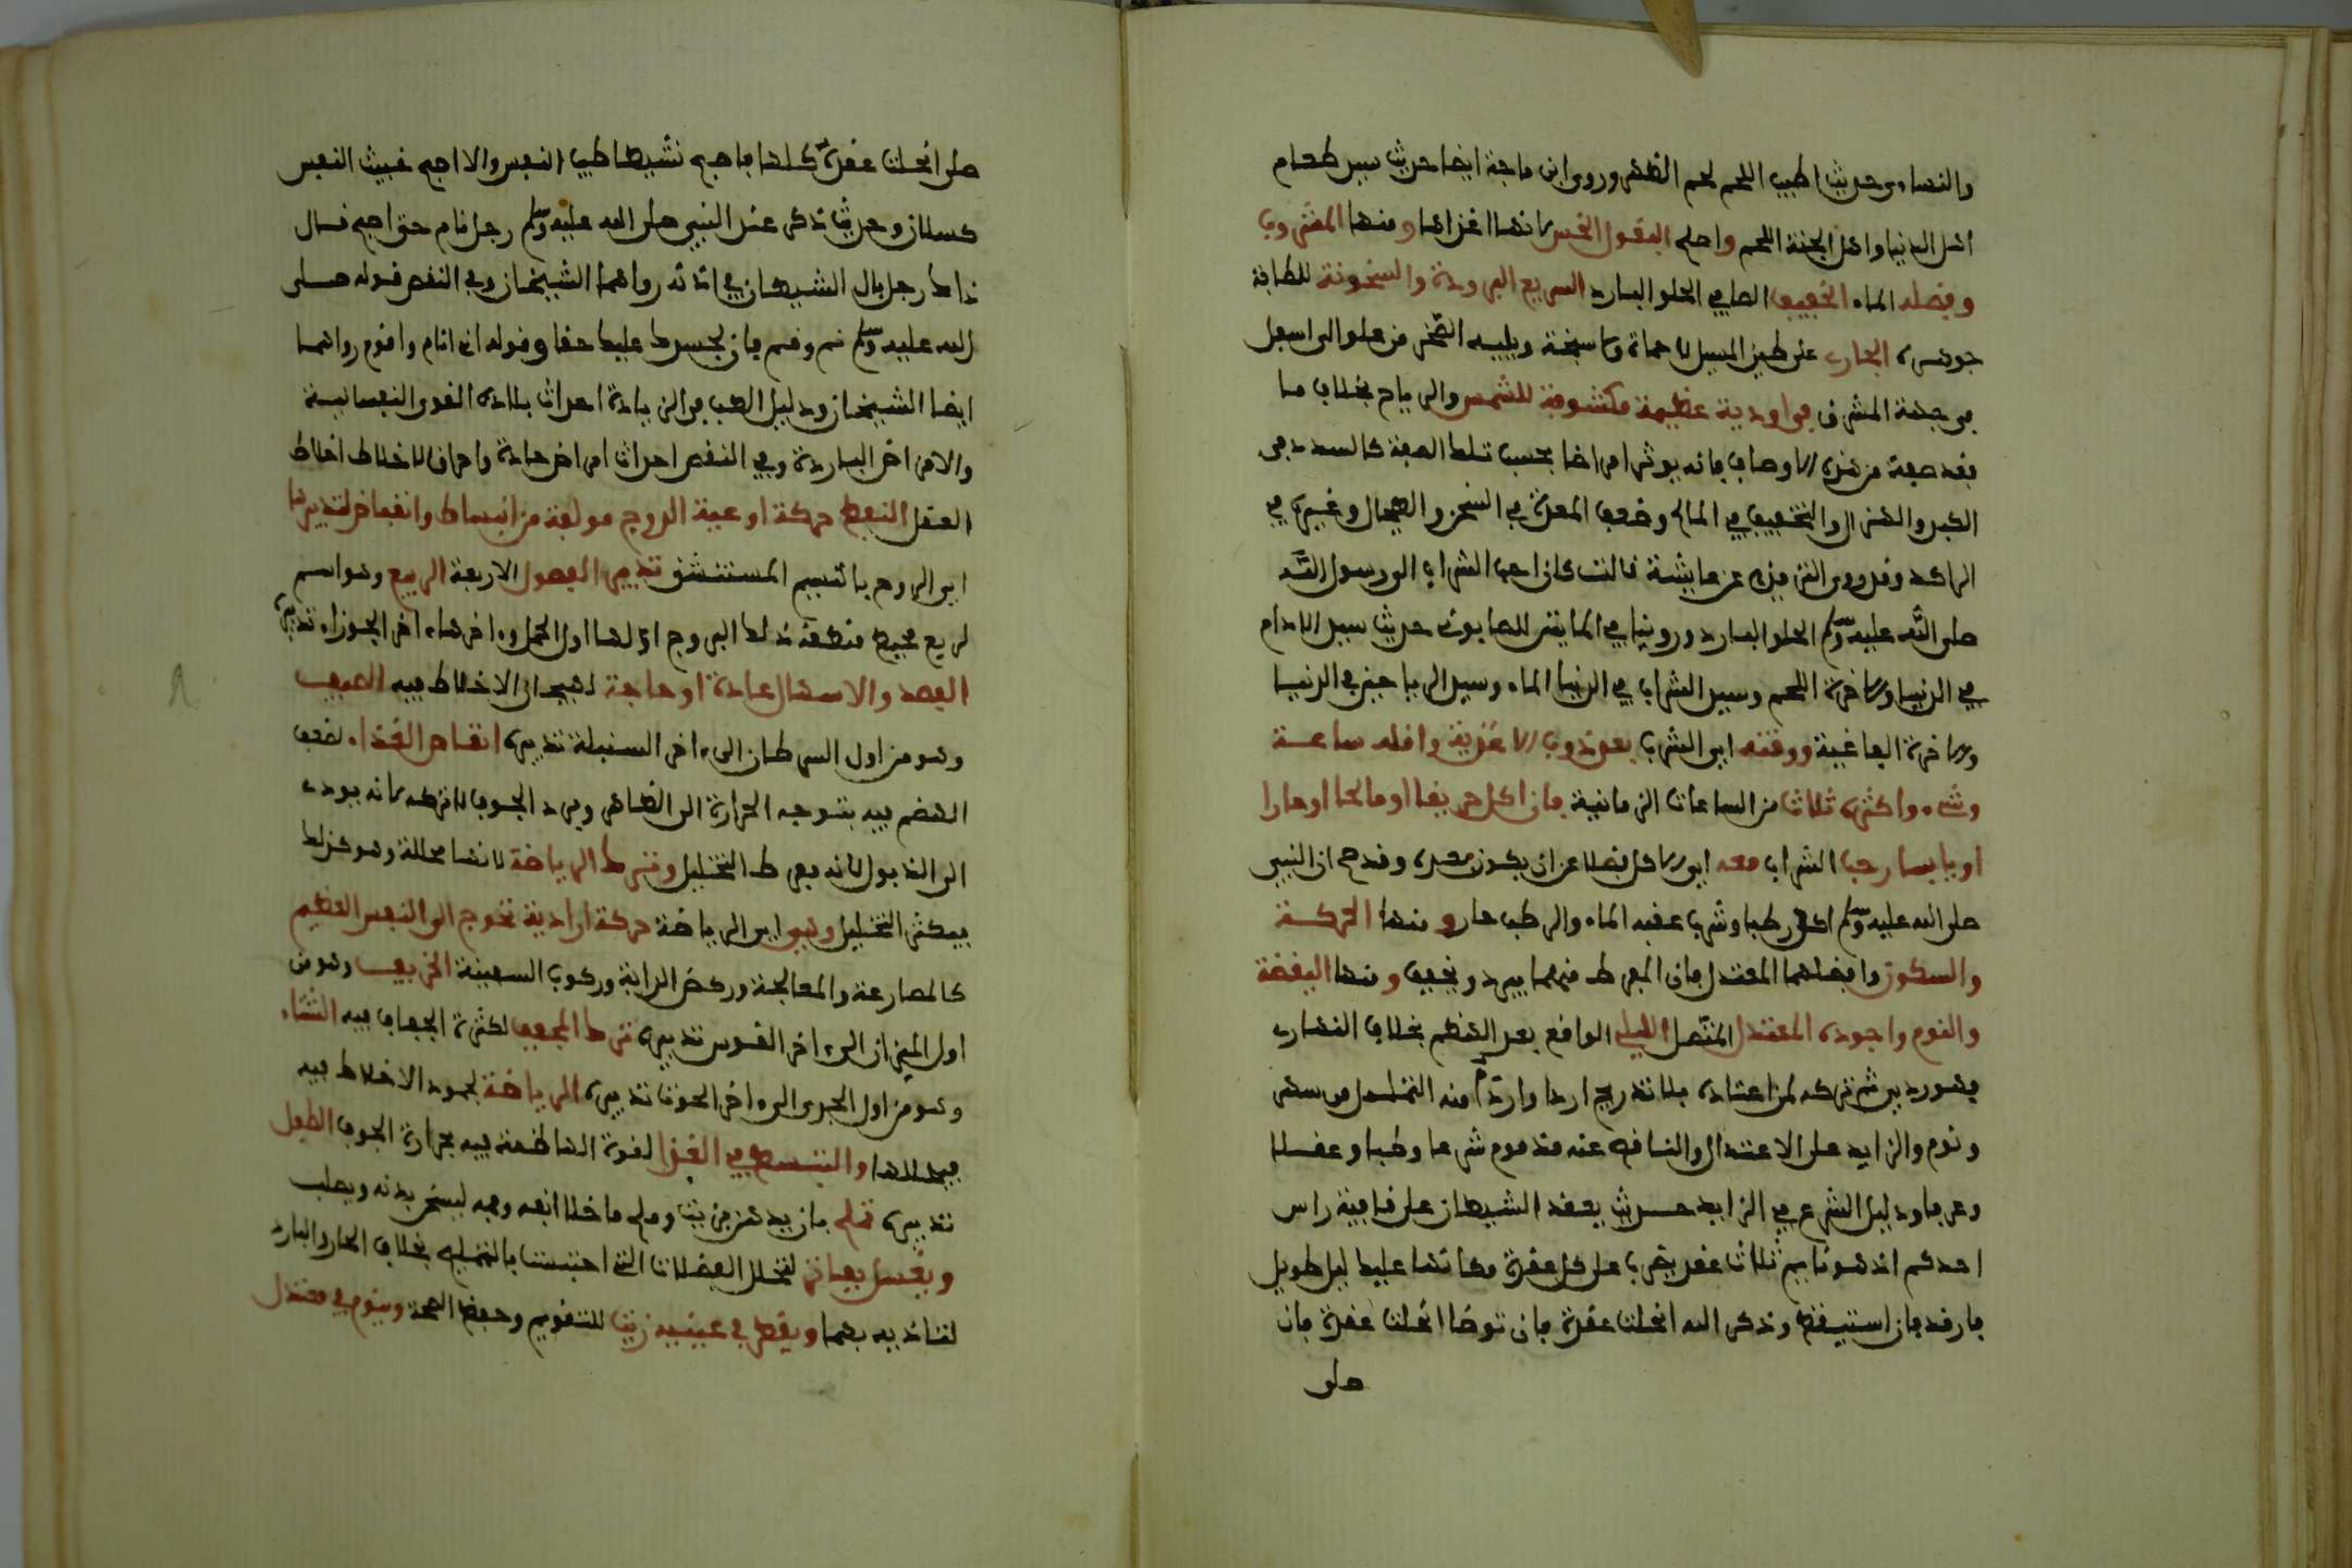 والنساءى حديث اطيب اللحم لحم الظهر وروى ابن ماجة ايضا حديث سيد طعام
اهل الدنيا واهل الجنة اللحم واصلح البقول الخس لانها اغذاها ومنها المشروب
وافضله الماء الخفيف الصافي الحلو البارد السريع البرودة والسخونة للطافة
جوهره الجارى على طين المسيل لا حماة ولا سبخة ويليه الصخر من علو الى اسفل
فى جهة المشرق فى اودية عظيمة مكشوفة للشمس والرياح بخلاف ما
فقد صفة من هذه الاوصاف فانه يورث امراضا بحسب تلك الصفة كالسدد فى
الكدر والهزال والتخفيف في المالح وضعف المعدة في السخن والطحال وغيره في
الراكد وقد روى الترمذى عن عايشة قالت كان احب الشراب الى رسول الله
صلى الله عليه وسلم الحلو البارد وروينا في المايتين للصابونى حديث سيد الادام
في الدنيا والاخرة اللحم وسيد الشراب في الدنيا الماء وسيد الرياحين في الدنيا
والاخرة الفاغية ووقته اي الشرب بعد ذوب الاغذية واقله ساعة
وشىء واكثره ثلاث من الساعات الزمانية فان اكل حريفا او مالحا او حارا
او يابسا رجب الشراب معه اي الاكل فضلا عن ان يكون بعده وقد صح ان النبي
صلى الله عليه وسلم اكل رطبا وشرب عقبه الماء والرطب حار ومنها الحركة
والسكون وافضلهما المعتدل فان المفرط منهما يبرد ويجفف ومنها اليقظة
والنوم واجوده المعتدل المتصل الليلي الواقع بعد الهضم بخلاف النهارى
فهو ردي ثم تركه لمن اعتاده بلا تدريج اردا واردأ منه التململ بين سهر
ونوم والزايد على الاعتدال والناقص عنه مذموم شرعا وطبا وعقلا
وعرفا ودليل الشرع في الزايد حديث يعقد الشيطان على قافية راس
احدكم اذا هو نايم ثلاث عقد يضرب على كل عقدة مكانها عليك ليل طويل
فارقد فان استيقظ وذكر الله انحلت عقدة فان توضا انحلت عقدة فان
صلى
صلى انحلت عقده كلها فاصبح نشيطا طيب النفس والا اصبح خبيث النفس
كسلان وحديث ذكر عند النبي صلى الله عليه وسلم رجل نام حتى اصبح فقال
ذاك رجل بال الشيطان في اذنه رواهما الشيخان وفي النقص قوله صلى
الله عليه وسلم نم وقم فان لجسدك عليك حقا وقوله انى انام واقوم رواهما
ايضا الشيخان ودليل الطب فى الزيادة احداث بلادة القوى النفسانية
والامراض الباردة وفي النقص احداث امراض حادة واحراق الاخلاط اختلاط
العقل النبض حركة اوعية الروح مولفة من انبساط وانقباض لتدبيرها
اي الروح بالنسيم المستنشق تدبير الفصول الاربعة الربيع وهو اسم
لربع محيط منطقة فلك البروج اولها اول الحمل واخرها اخر الجوزاء تدبيره
الفصد والاسهال عادة او حاجة لهيجان الاخلاط فيه الصيف
وهو من اول السرطان الى اخر السنبلة تدبيره انقاص الغذاء لضعف
الهضم فيه بتوجه الحرارة الى الظاهر وبرد الجوف لا تركه لانه يودى
الى الذبول لانه يفرط التحليل وترك الرياضة لانها محللة وهو كذلك
فيكثر التحليل وهي اي الرياضة حركة ارادية تحوج الى النفس العظيم
كالمصارعة والمعالجة وركض الدابة وركوب السفينة الخريف وهو من
اول الميزان الى اخر القوس تدبيره ترك المجفف لكثرة الجفاف فيه الشتاء
وهو من اول الجدى الى اخر الحوت تدبيره الرياضة لجمود الاخلاط فيه
فيحللها والتبسط في الغذا لقوة الهاضمة فيه بحرارة الجوف الطفل
تدبيره تمليح بان يدهن بزيت وملح ما خلا انفه وفمه ليسخن بدنه ويصلب
ويغسل بفاتر لتحلل الفضلات التى احتبست بالتمليح بخلاف الحار والبارد
لتاذيه بهما ويقطر في عينيه زيت للتقويم وحفظ الصحة وينوم في معتدل